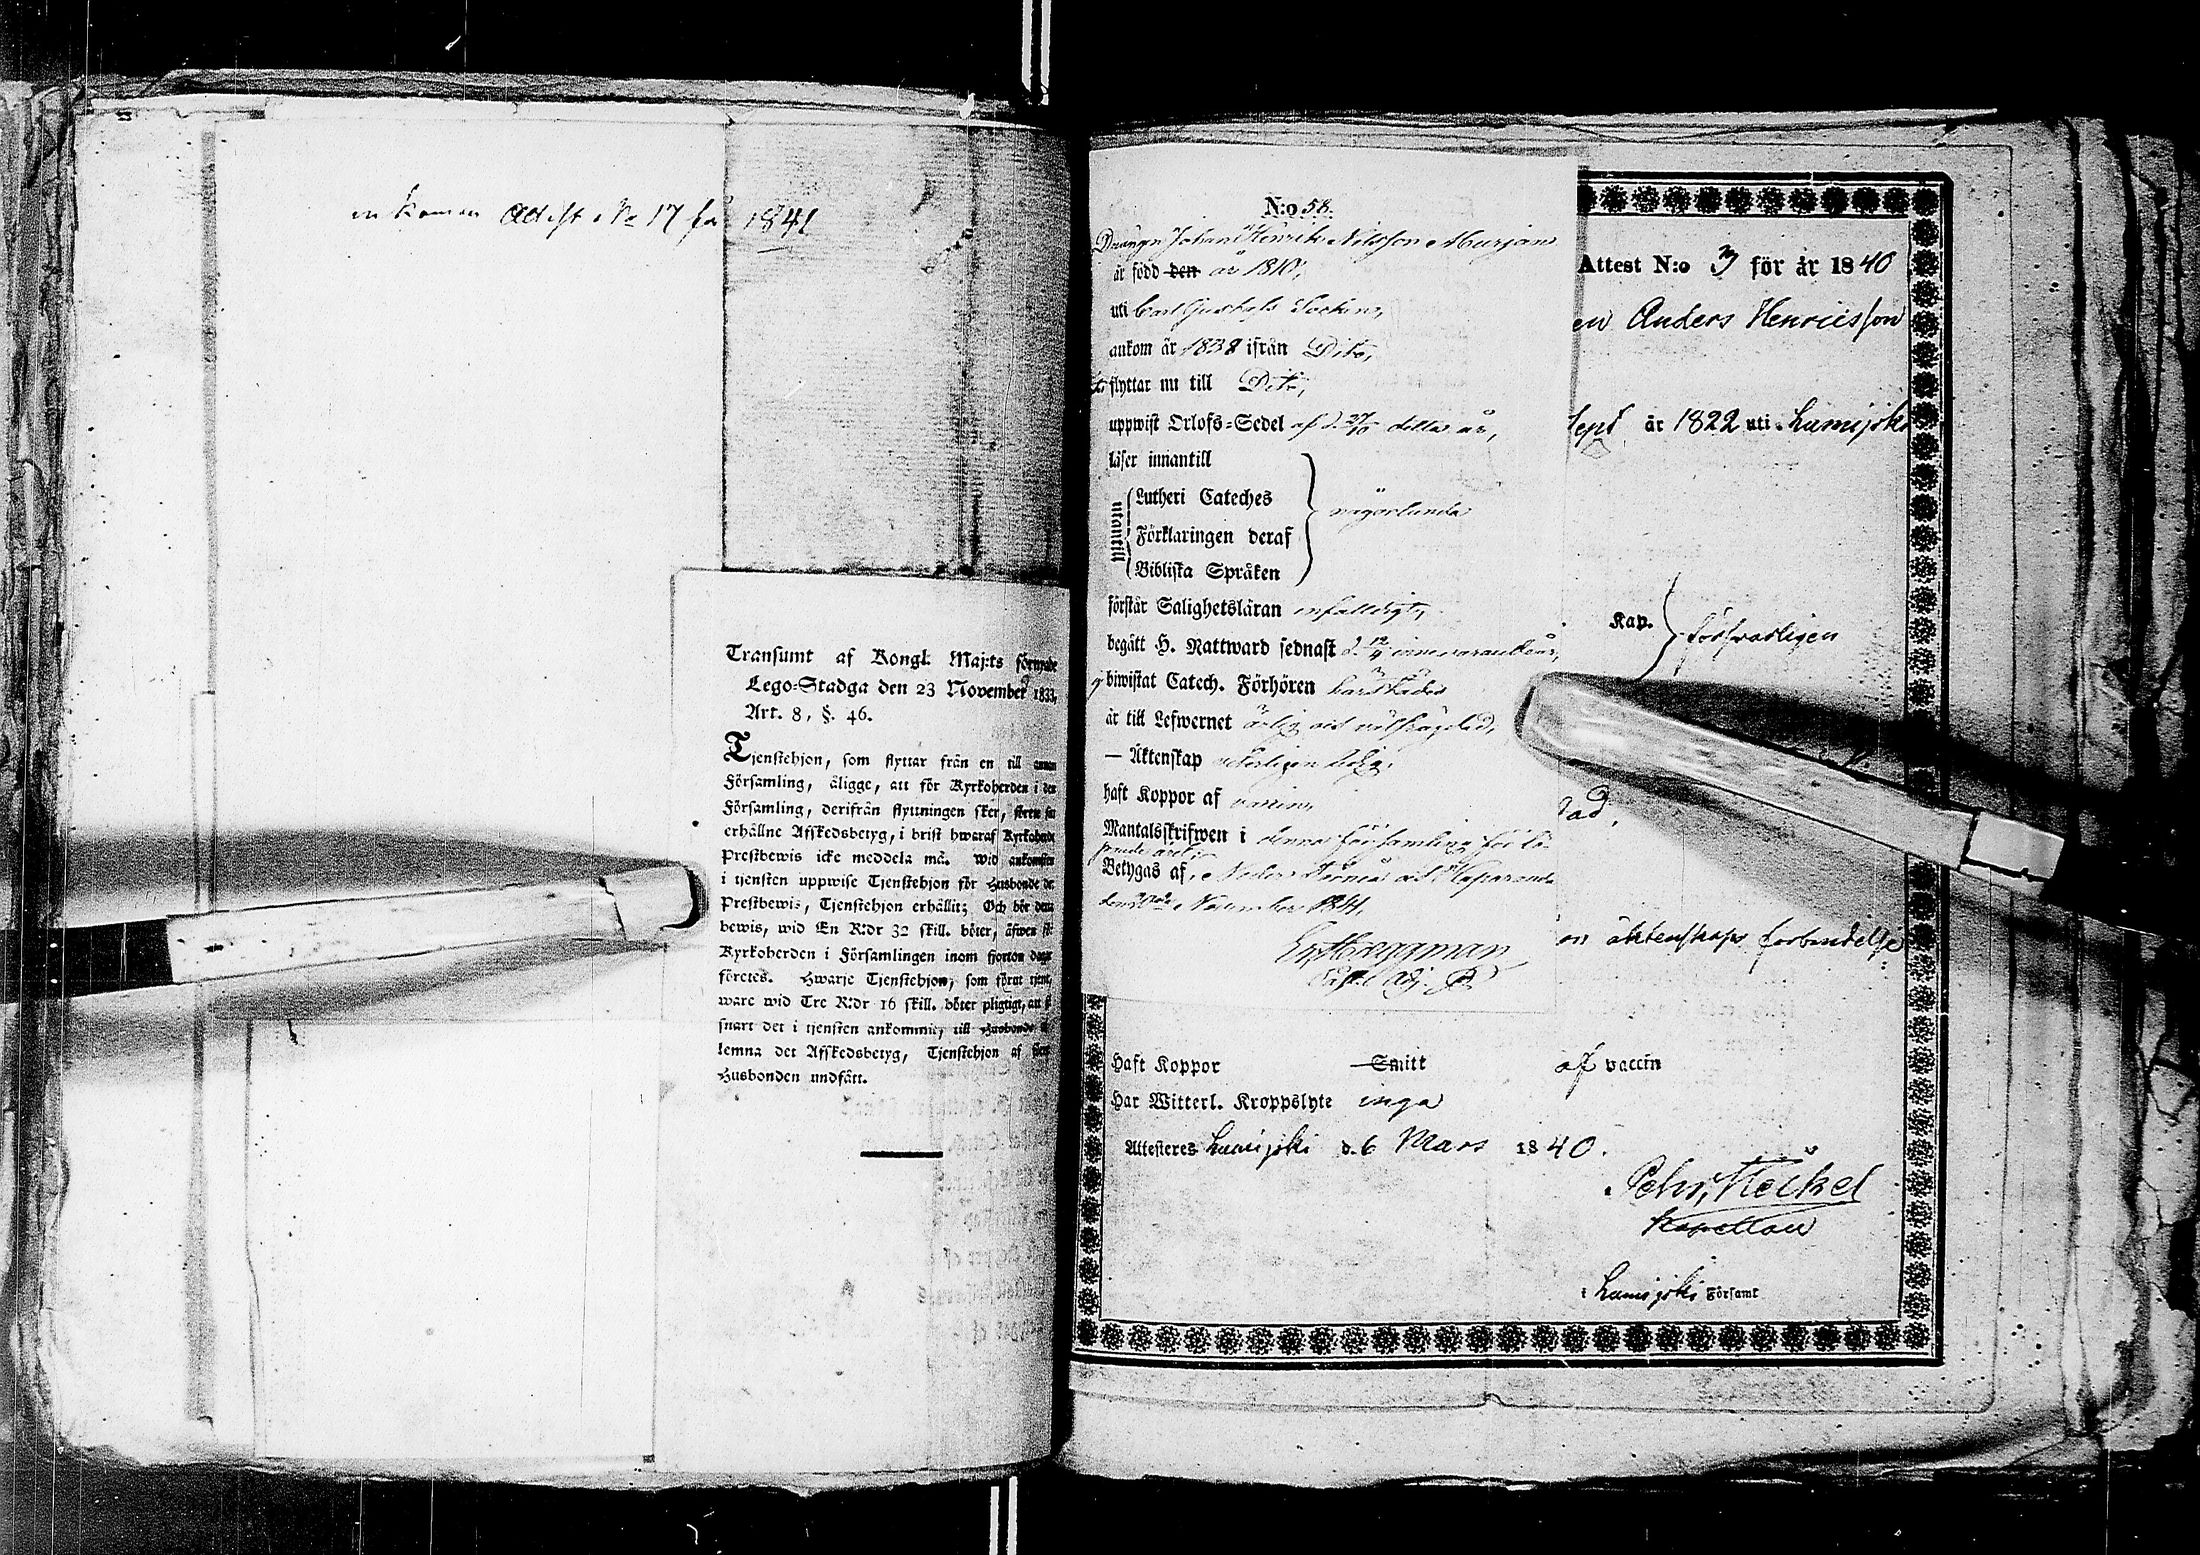 en komen Attest No 17 för 1841
Transumt af Kongl. Maj:ts förnyade
Lego-Stadga den 23 November 1833,
Art. 8, §. 46.
Tjenstehjon, som flyttar från en till annan
Församling, åligge, att för Kyrkoherden i den
Församling, derifrån flyttningen sker, förete sin
erhållne Afskedsbetyg, i brist hwaraf Kyrkoherde
Prestbewis icke meddela må. Wid ankomsten
i tjensten uppwise Tjenstehjon för Husbonde det
Prestbewis, Tjenstehjon erhållit; Och bör detta
bewis, wid En R:dr 32 skill. böter, äfwen för
Kyrkoherden i Församlingen inom fjorton dagar
företes. Hwarje Tjenstehjon, som förut tjent,
ware wid Tre R:dr 16 skill. böter pligtigt, att så
snart det i tjensten ankommit, till Husbonde
lemna det Afskedsbetyg, Tjenstehjon af förre
Husbonden undfått.
N:o 58.
Drängn Johan Henrik Nilsson Murjan
är född den år 1810,
uti Carl Gustafs Socken,
ankom år 1838 ifrån Dito,
flyttar nu till Dito,
uppwist Orlofs-Sedel af d. 27/10 detta år,
läser innantill
utantill
Lutheri Cateches
Förklaringen deraf
Bibliska Språken
någorlunda
förstår Salighetsläran enfaldigt,
begått H. Nattward sednast d. 12/9 innevarande år,
biwistat Catech. Förhören
är till Lefwernet ärlig och välfrägdad,
— Äktenskap ledig,
haft Koppor af vaccin,
Mantalsskrifwen i denna församling för lö-
pande året,
Betygas af, Neder Torneå och Haparanda
den November 1841.
Bergman
Adj.
Attest N:o 3 för år 1840
en Anders Henricsson
Sept år 1822 uti Lumijoki
Kap. } försvarligen
on äktenskaps förbindelse
Haft Koppor Smitt af vaccin
Har Witterl. Kroppslyte inga
Attesteres Lumijoki d. 6 Mars 1840.
Pehr Heikel
Kapellan
i Lumijoki Församl